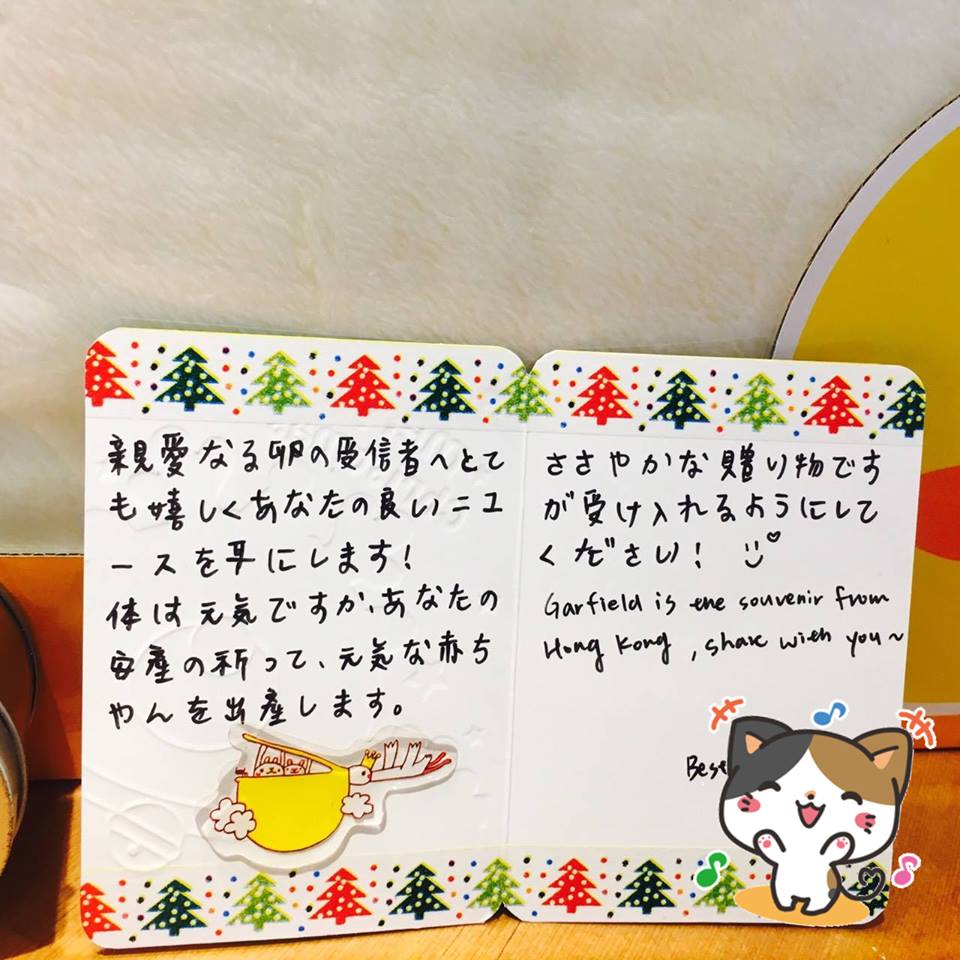 親愛なる卵の受信者へとて
も嬉しくあなたの良いニュ
ースを耳にします!
体は元気ですか、あなたの
安産の祈って、元気な赤ち
ゃんを出産します。
ささやかな贈り物です
が受け入れるようにして
ください!
Garfield is the souvenir from
Hong Kong, share with you~
Best